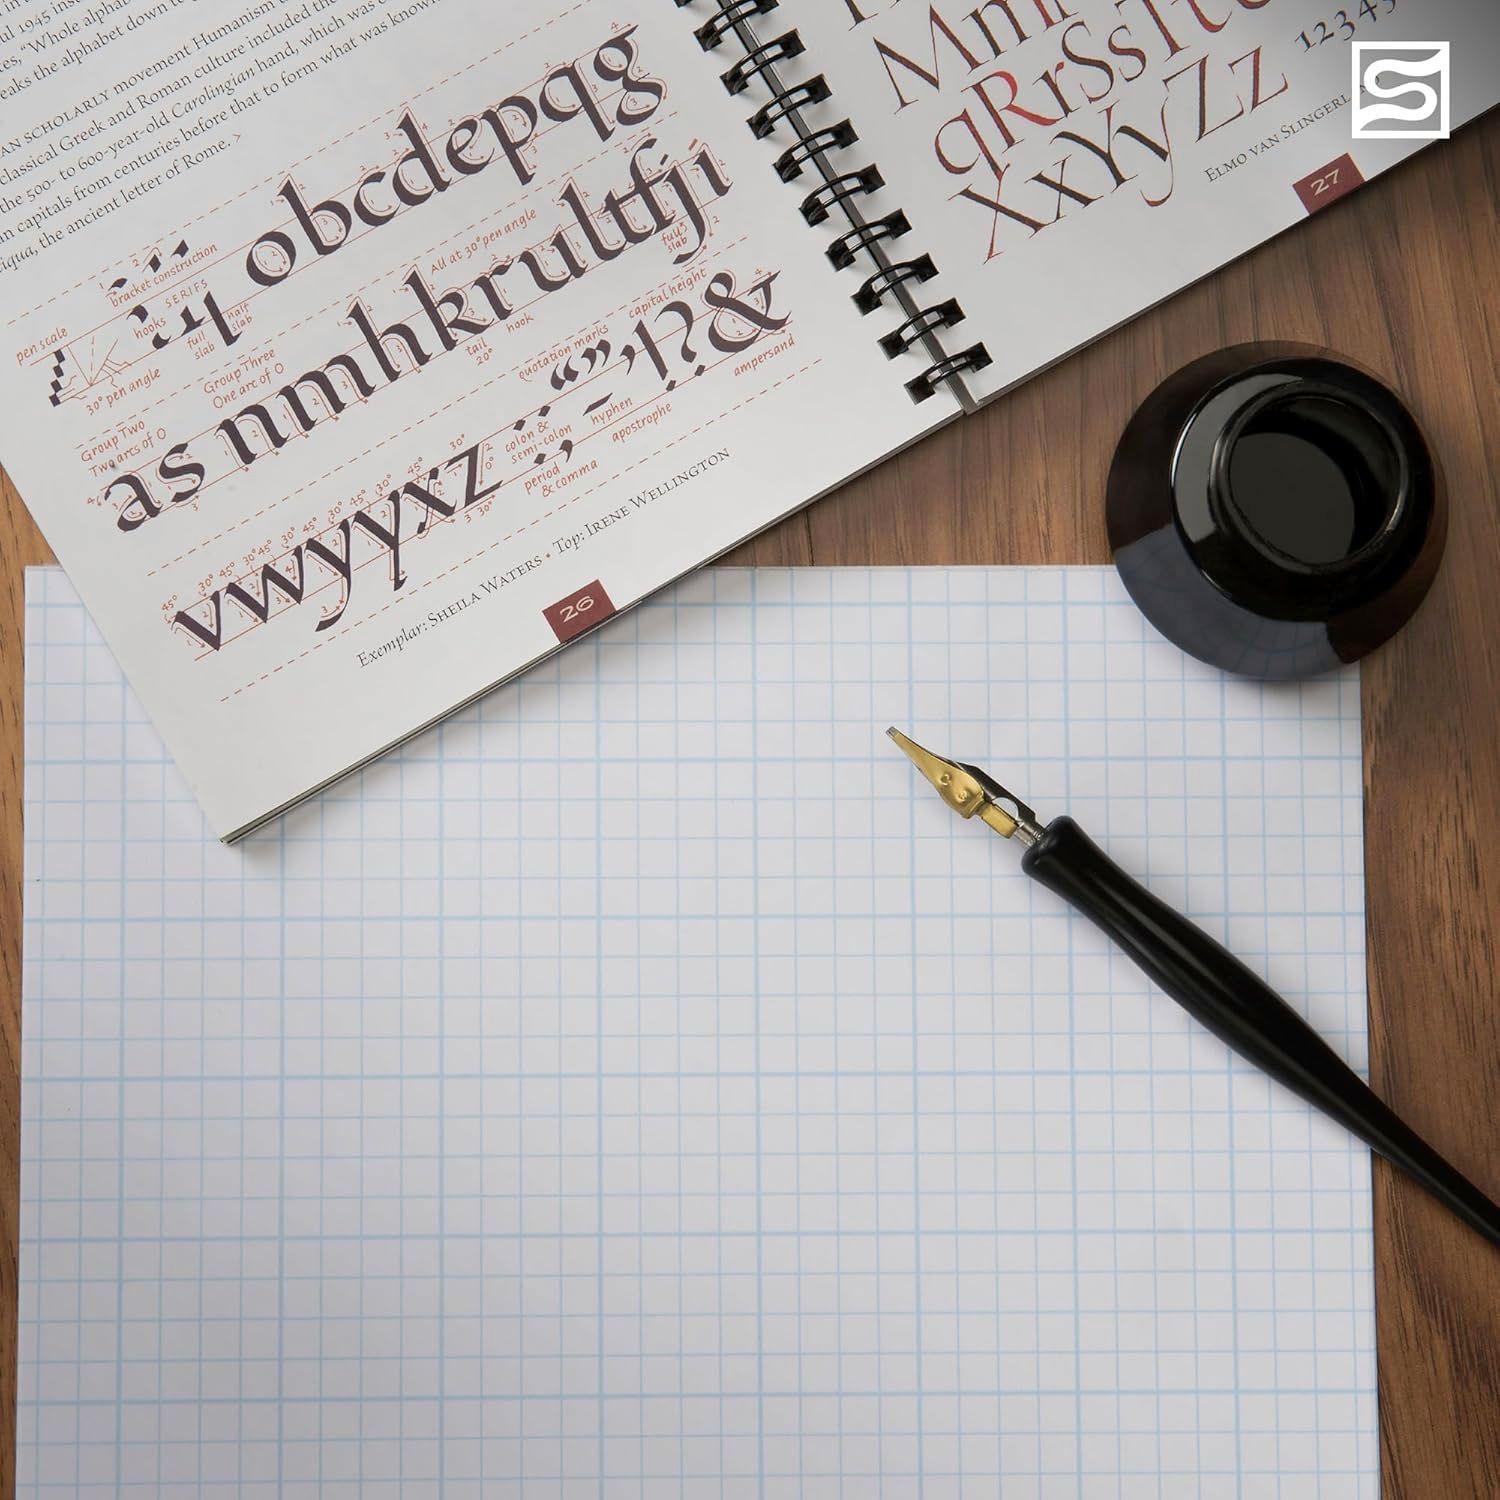 ul 1945
"Whole alphab
eaks the alphabet down to
AN SCHOLARLY movement Humanism
classical Greek and Roman culture included the
the 500- to 600-year-old Carolingian hand, which was
an capitals from centuries before that to form what was know
iqua, the ancient letter of Rome. >
bracket construction
SERIFS
pen scale
hooks
full slab
half slab
30° pen angle
obcdepqg
Group Three
One arc of O
All at 30° pen angle
full slab
Group Two
Two arcs of O
as nmhkrultfji
hook
tail 20°
quotation marks
capital height
“”’!?&
ampersand
colon & semi-colon
hyphen
apostrophe
period & comma
vwyyxz :;-
45° 30° 45° 30° 45° 30° 45° 30° 45° 30°
Exemplar: SHEILA WATERS • Top: IRENE WELLINGTON
26
Mm
qRrSsTt
XxYyZz
12345
ELMO VAN SLINGERLAN
27
S